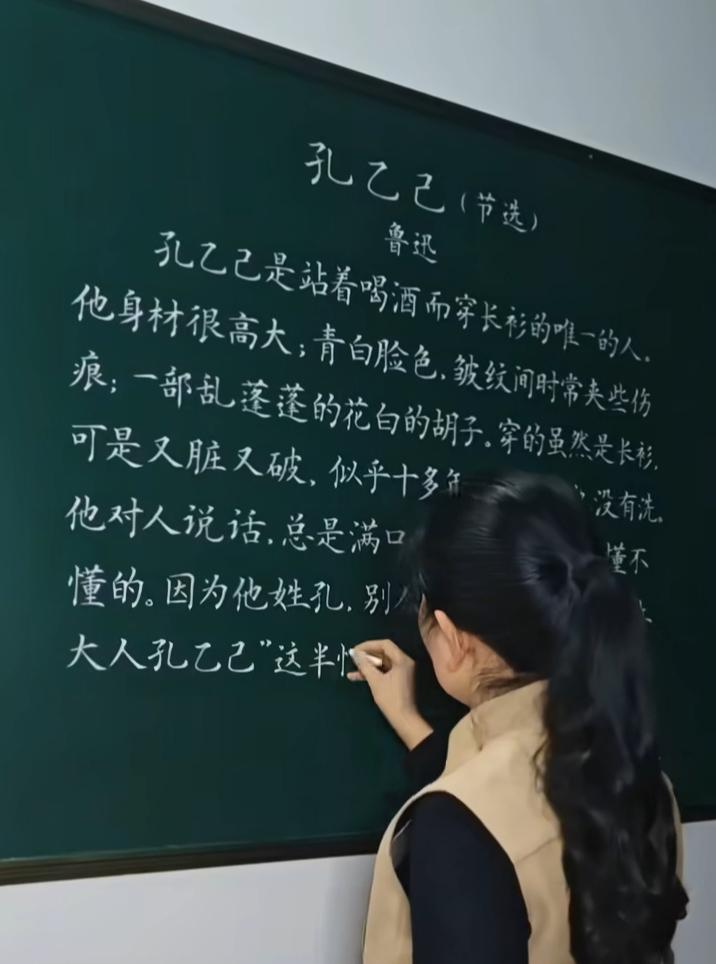 孔乙己（节选）
鲁迅
孔乙己是站着喝酒而穿长衫的唯一的人。
他身材很高大；青白脸色，皱纹间时常夹些伤
痕；一部乱蓬蓬的花白的胡子。穿的虽然是长衫，
可是又脏又破，似乎十多年 没有洗。
他对人说话，总是满口 懂不
懂的。因为他姓孔，别人
大人孔乙己”这半